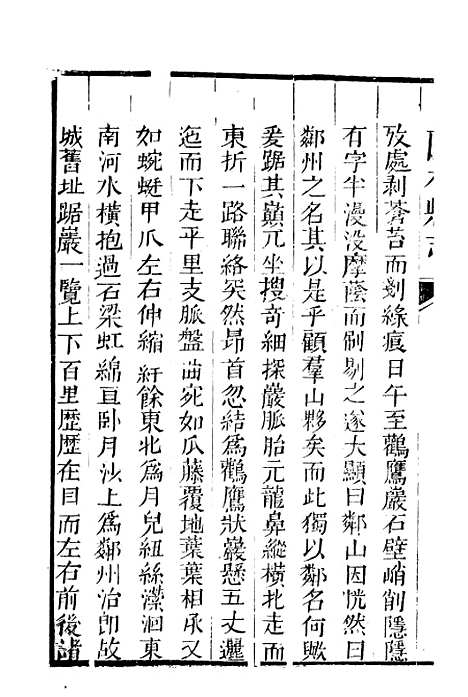 攷處剥蒼苔而剗綠痕日午至鸛鷹巖石壁峭削隱隱
有字半漫没摩蔭而刷剔之遂大顯曰鄰山因恍然曰
鄰州之名其以是乎顧羣山夥矣而此獨以鄰名何歟
爰踞其巔兀坐搜奇細探嚴脈胎元龍鼻縱横北走而
東折一路聯絡突然昂首忽結爲鸛鷹狀巖懸五丈邐
迤而下走平里支脈盤曲宛如瓜藤覆地葉葉相承又
如蜿蜒甲爪左右伸縮紆餘東北爲月兒紐絲漾洄東
南河水横抱過石梁虹綿亘卧月沙上爲鄰州治即故
城舊址踞巖一覽上下百里歷歷在目而左右前後諸